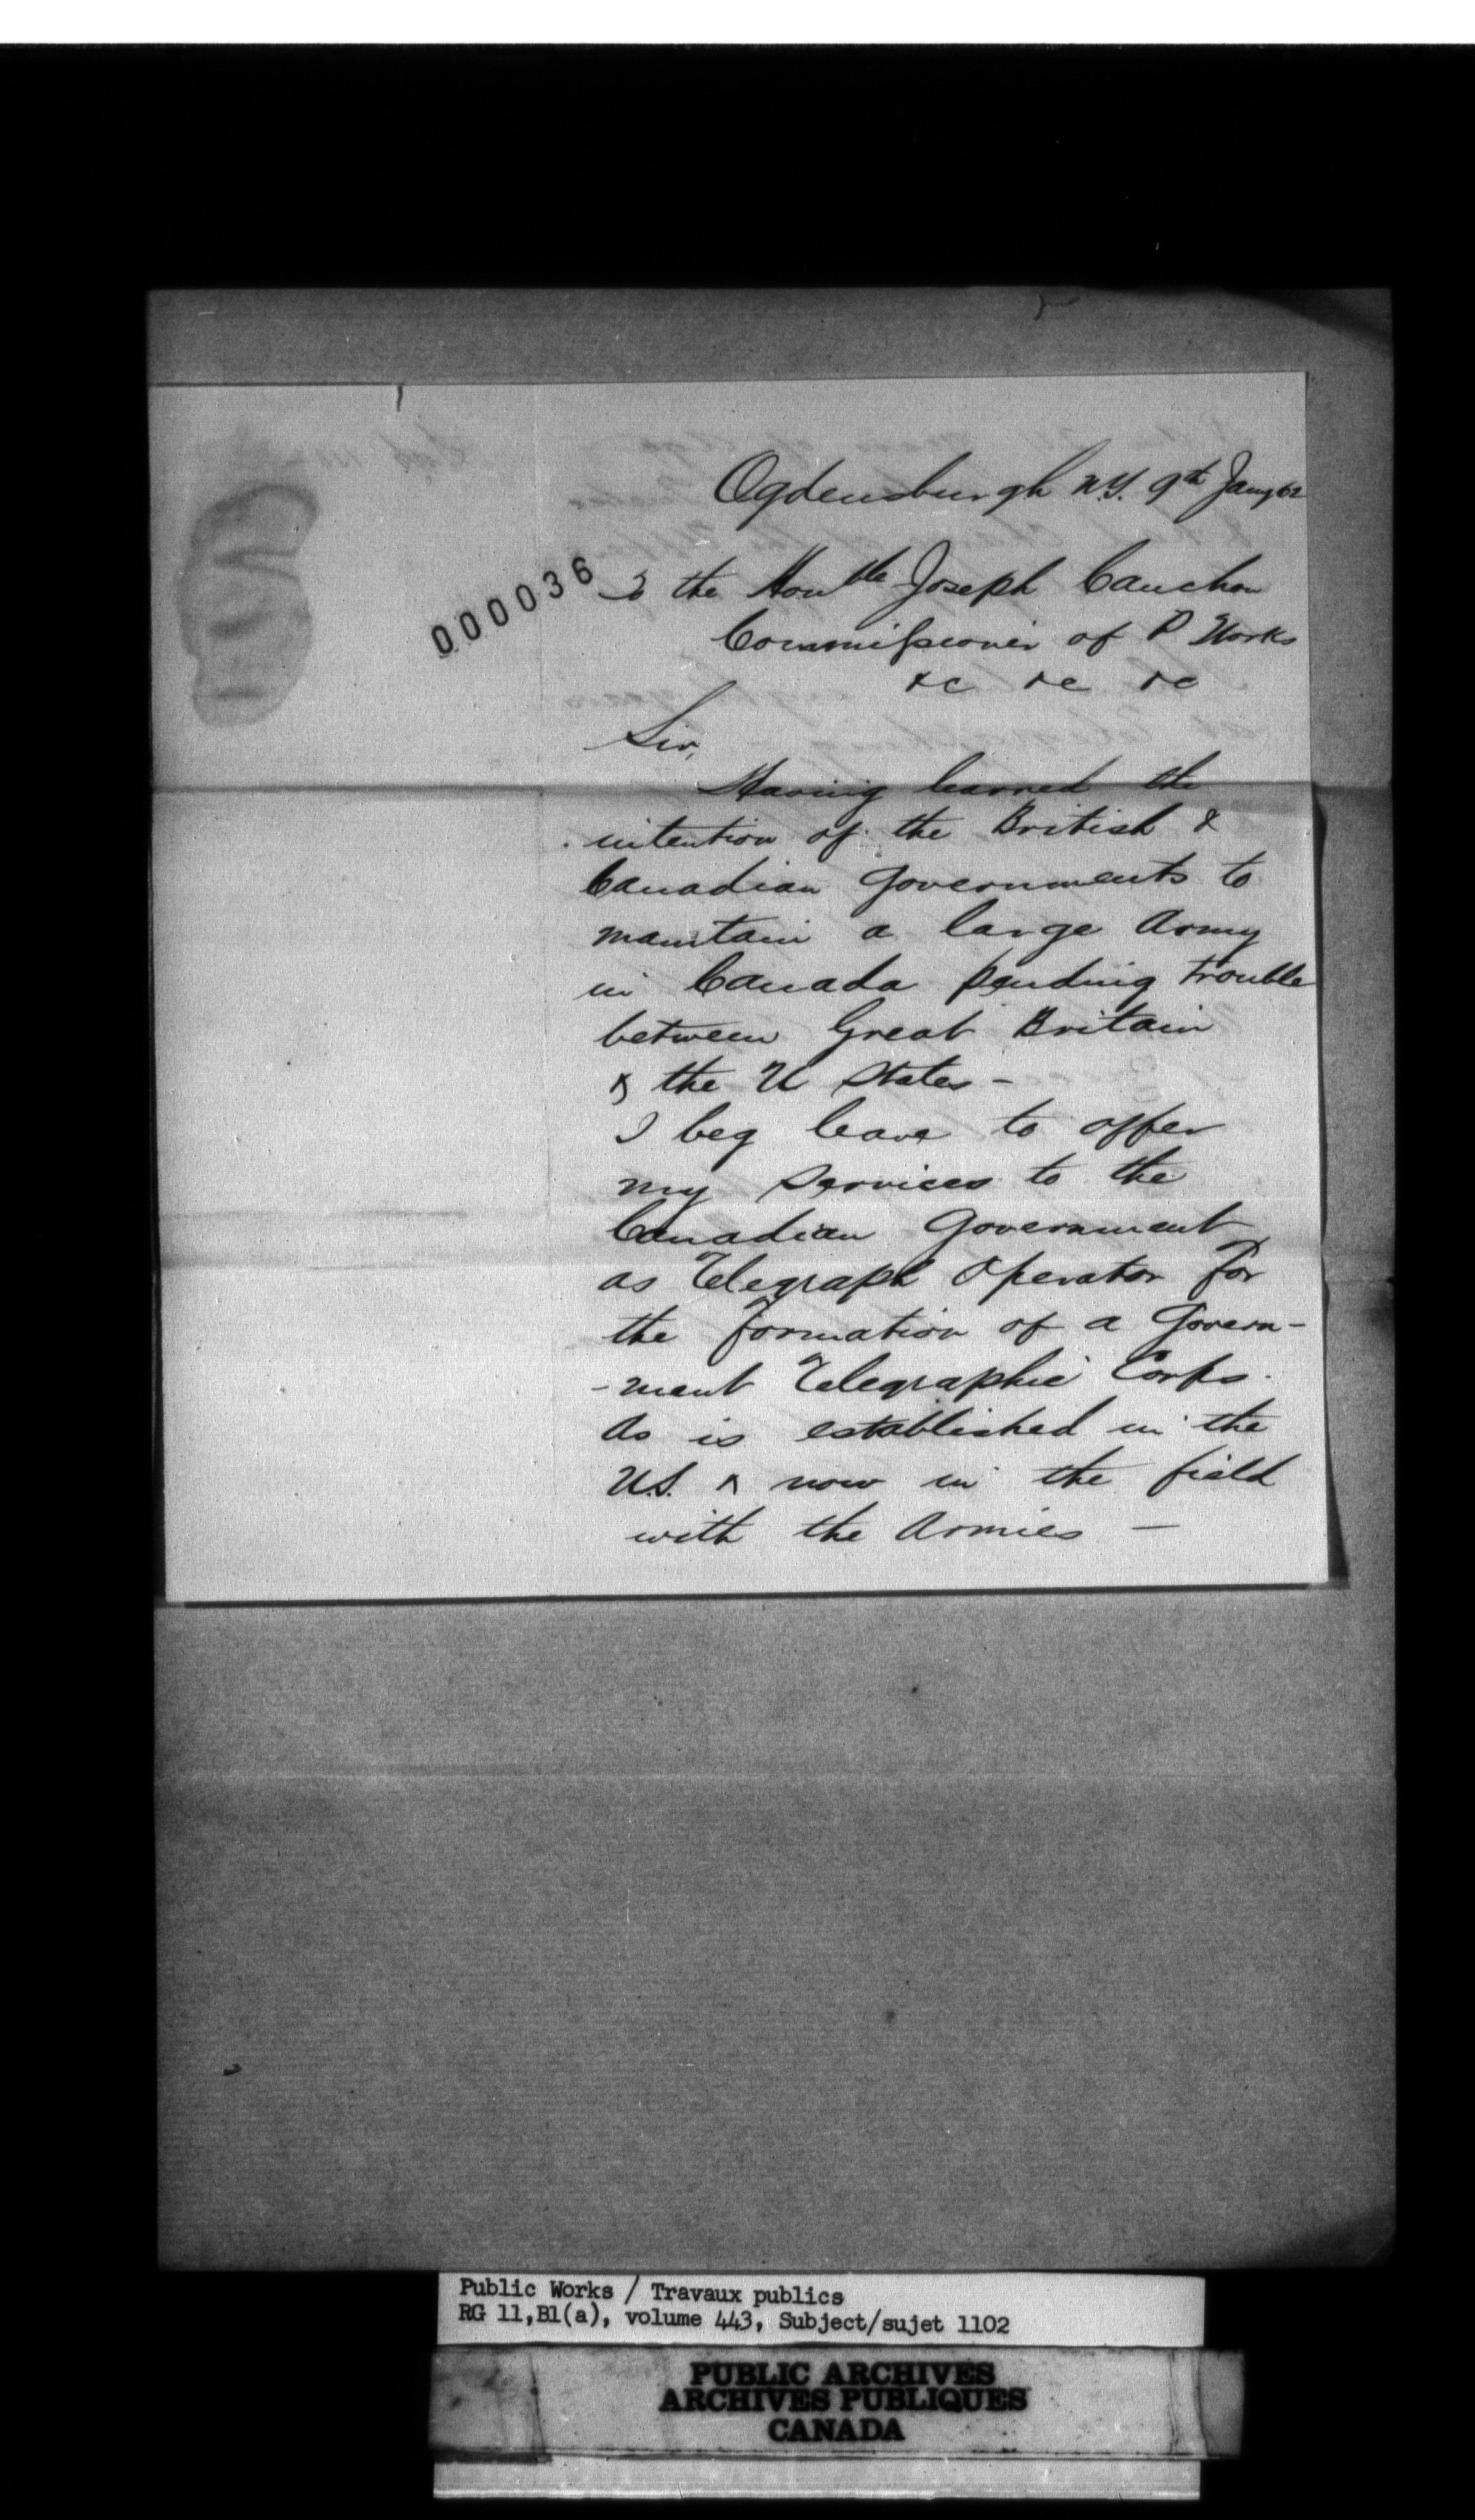 Ogdensburgh N.Y. 9th Jany 62
000036
To the Honble Joseph Cauchon
Commissioner of P Works
&c &c &c
Sir,
Having learned the
intention of the British &
Canadian Governments to
maintain a large Army
in Canada pending trouble
between Great Britain
& the U States -
I beg leave to offer
my services to the
Canadian Government
as Telegraph Operator for
the formation of a Govern-
-ment Telegraphic Corps.
As is established in the
U.S. & now in the field
with the Armies —
Public Works / Travaux publics
RG 11,B1(a), volume 443, Subject/sujet 1102
PUBLIC ARCHIVES
ARCHIVES PUBLIQUES
CANADA